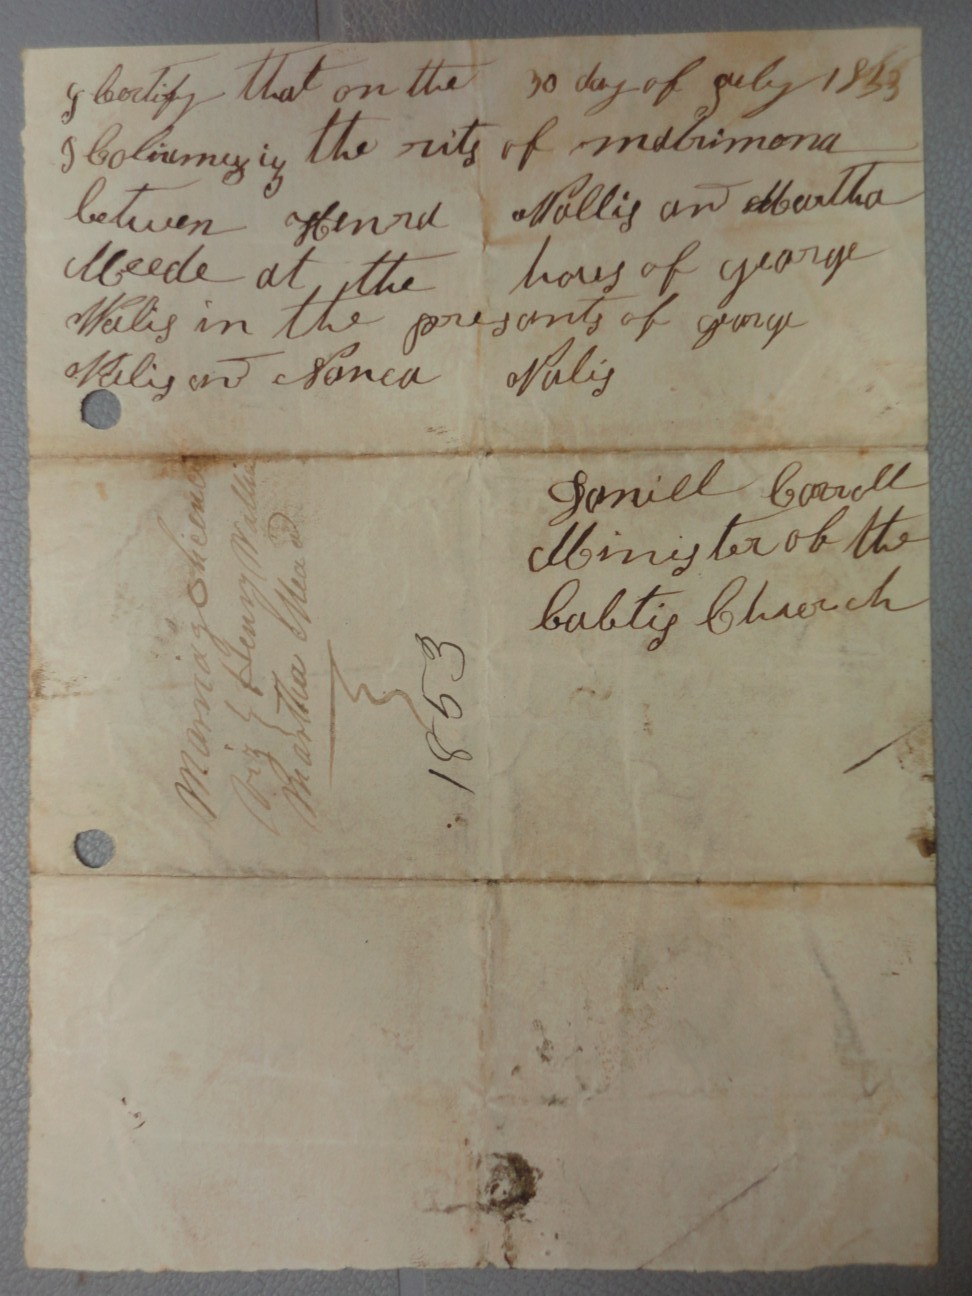 I Certify that on the 30 day of july 1853
I Coliamezig the rits of matrimona
betwen Henra Wallis an Martha
Meede at the hous of george
Walis in the presants of george
Walis an Nanca Walis
Daniell Carroll
Minister ob the
babtis Church
Marriag
viz Henry Willis
Martha Mead
1853